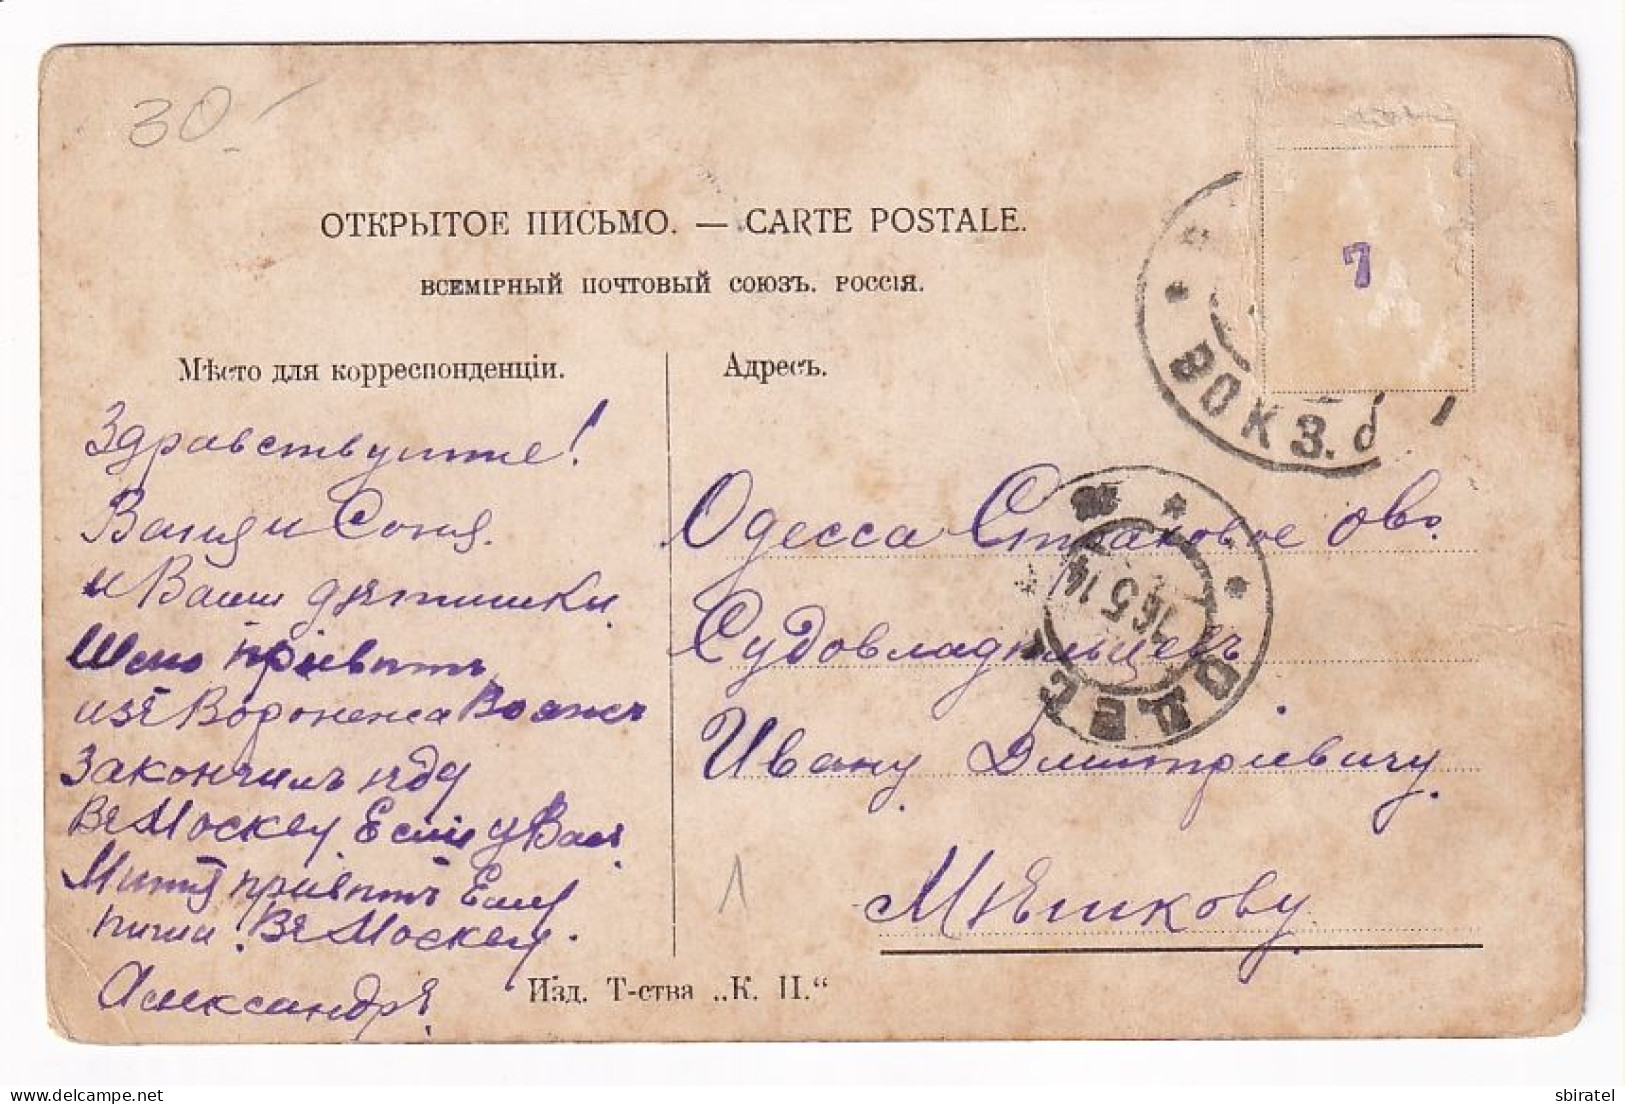 30.-
ОТКРЫТОЕ ПИСЬМО. — CARTE POSTALE.
ВСЕМІРНЫЙ ПОЧТОВЫЙ СОЮЗЪ. РОССІЯ.
7
Мѣсто для корреспонденціи.
Адресъ.
ВОКЗ.
Здравствуите!
Ваня и Соня.
и Ваши дѣтишки.
Шлю привѣтъ
изъ Воронежа
закончилъ
Въ Москву Если у Васъ
Митя привѣтъ Ему
пиши. Въ Москву.
Александръ.
Одесса Страховое о-во.
Судовладѣльцевъ
Ивану Дмитріевичу.
Мѣшкову.
ОДЕССА
16 5 14
1
Изд. Т-ства „К. П."
sbiratel